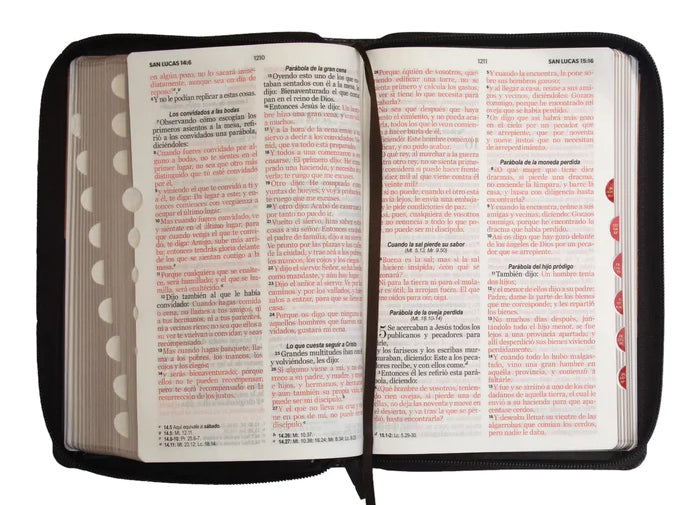 SAN LUCAS 14:6
1210
en algún pozo, no lo sacará inmedia-
tamente, aunque sea en día de
reposo?
6Y no le podían replicar a estas cosas.
Los convidados a las bodas
7Observando cómo escogían los
primeros asientos a la mesa, refi-
rió a los convidados una parábola,
diciéndoles:
8Cuando fueres convidado por al-
guno a bodas, no te sientes en el
primer lugar, no sea que otro más
distinguido que tú esté convidado
por él,
9y viniendo el que te convidó a ti y
a él, te diga: Da lugar a éste; y en-
tonces comiences con vergüenza a
ocupar el último lugar.
10Mas cuando fueres convidado, ve
y siéntate en el último lugar, para
que cuando venga el que te convi-
dó, te diga: Amigo, sube más arri-
ba; entonces tendrás gloria delante
de los que se sientan contigo a la
mesa.
11Porque cualquiera que se enalte-
ce, será humillado; y el que se hu-
milla, será enaltecido.
12Dijo también al que le había
convidado: Cuando hagas comida
o cena, no llames a tus amigos, ni
a tus hermanos, ni a tus parientes,
ni a vecinos ricos; no sea que ellos a
su vez te vuelvan a convidar, y seas
recompensado.
13Mas cuando hagas banquete, lla-
ma a los pobres, los mancos, los
cojos y los ciegos;
14y serás bienaventurado; porque
ellos no te pueden recompensar,
pero te será recompensado en la
resurrección de los justos.
14.5 Aquí equivale a sábado.
14.5: Mt. 12.11.
14.8-10: Pr. 25.6-7.
14.11: Mt. 23.12; Lc. 18.14.
Parábola de la gran cena
15Oyendo esto uno de los que es-
taban sentados con él a la mesa, le
dijo: Bienaventurado el que coma
pan en el reino de Dios.
16Entonces Jesús le dijo: Un hom-
bre hizo una gran cena, y convidó
a muchos.
17Y a la hora de la cena envió a su
siervo a decir a los convidados: Ve-
nid, que ya todo está preparado.
18Y todos a una comenzaron a
excusarse. El primero dijo: He com-
prado una hacienda, y necesito ir a
verla; te ruego que me excuses.
19Otro dijo: He comprado cinco
yuntas de bueyes, y voy a probarlos;
te ruego que me excuses.
20Y otro dijo: Acabo de casarme, y
por tanto no puedo ir.
21Vuelto el siervo, hizo saber estas
cosas a su señor. Entonces enojado
el padre de familia, dijo a su siervo:
Ve pronto por las plazas y las calles
de la ciudad, y trae acá a los pobres,
los mancos, los cojos y los ciegos.
22Y dijo el siervo: Señor, se ha hecho
como mandaste, y aún hay lugar.
23Dijo el señor al siervo: Ve por los
caminos y por los vallados, y fuérza-
los a entrar, para que se llene mi
casa.
24Porque os digo que ninguno de
aquellos hombres que fueron con-
vidados, gustará mi cena.
Lo que cuesta seguir a Cristo
25Grandes multitudes iban con él;
y volviéndose, les dijo:
26Si alguno viene a mí, y no abo-
rrece a su padre, y madre, y mujer,
e hijos, y hermanos, y hermanas, y
aun también su propia vida, no
puede ser mi discípulo.
27Y el que no lleva su cruz y vie-
ne en pos de mí, no puede ser mi
discípulo.
14.26: Mt. 10.37.
14.27: Mt. 10.38; 16.24; Mr. 8.34; Lc. 9.23.
1211
SAN LUCAS 15:16
28Porque ¿quién de vosotros, que-
riendo edificar una torre, no se
sienta primero y calcula los gastos,
a ver si tiene lo que necesita para
acabarla?
29No sea que después que haya
puesto el cimiento, y no pueda aca-
barla, todos los que lo vean comien-
cen a hacer burla de él,
diciendo: Este hombre comenzó
a edificar, y no pudo acabar.
¿O qué rey, al marchar a la guerra
contra otro rey, no se sienta primero
y considera si puede hacer frente
con diez mil al que viene contra él
con veinte mil?
Y si no puede, cuando el otro está
todavía lejos, le envía una embajada
y le pide condiciones de paz.
Así, pues, cualquiera de vosotros
que no renuncia a todo lo que po-
see, no puede ser mi discípulo.
Cuando la sal pierde su sabor
(Mt. 5.13; Mr. 9.50)
Buena es la sal; mas si la sal se
hiciere insípida, ¿con qué se
sazonará?
Ni para la tierra ni para el mula-
dar es útil; la arrojan fuera. El que
tiene oídos para oír, oiga.
Parábola de la oveja perdida
(Mt. 18.10-14)
15 Se acercaban a Jesús todos los
publicanos y pecadores para
oírle,
y los fariseos y los escribas mur-
muraban, diciendo: Este a los peca-
dores recibe, y con ellos come.
Entonces él les refirió esta pará-
bola, diciendo:
¿Qué hombre de vosotros, teniendo
cien ovejas, si pierde una de
ellas, no deja las noventa y nueve en
el desierto, y va tras la que se per-
dió, hasta encontrarla?
15.1-2: Lc. 5.29-30.
5Y cuando la encuentra, la pone so-
bre sus hombros gozoso;
6y al llegar a casa, reúne a sus ami-
gos y vecinos, diciéndoles: Gozaos
conmigo, porque he encontrado mi
oveja que se había perdido.
7Os digo que así habrá más gozo
en el cielo por un pecador que
se arrepiente, que por noventa
y nueve justos que no necesitan
de arrepentimiento.
Parábola de la moneda perdida
8¿O qué mujer que tiene diez
dracmas, si pierde una dracma, no
enciende la lámpara, y barre la
casa, y busca con diligencia hasta
encontrarla?
9Y cuando la encuentra, reúne a sus
amigas y vecinas, diciendo: Gozaos
conmigo, porque he encontrado la
dracma que había perdido.
10Así os digo que hay gozo delante
de los ángeles de Dios por un peca-
dor que se arrepiente.
Parábola del hijo pródigo
11También dijo: Un hombre tenía
dos hijos;
12y el menor de ellos dijo a su padre:
Padre, dame la parte de los bienes
que me corresponde; y les repartió
los bienes.
13No muchos días después, jun-
tándolo todo el hijo menor, se fue
lejos a una provincia apartada; y
allí desperdició sus bienes viviendo
perdidamente.
14Y cuando todo lo hubo malgas-
tado, vino una gran hambre en
aquella provincia, y comenzó a
faltarle.
15Y fue y se arrimó a uno de los ciu-
dadanos de aquella tierra, el cual le
envió a su hacienda para que apa-
centase cerdos.
16Y deseaba llenar su vientre de las
algarrobas que comían los cerdos,
pero nadie le daba.